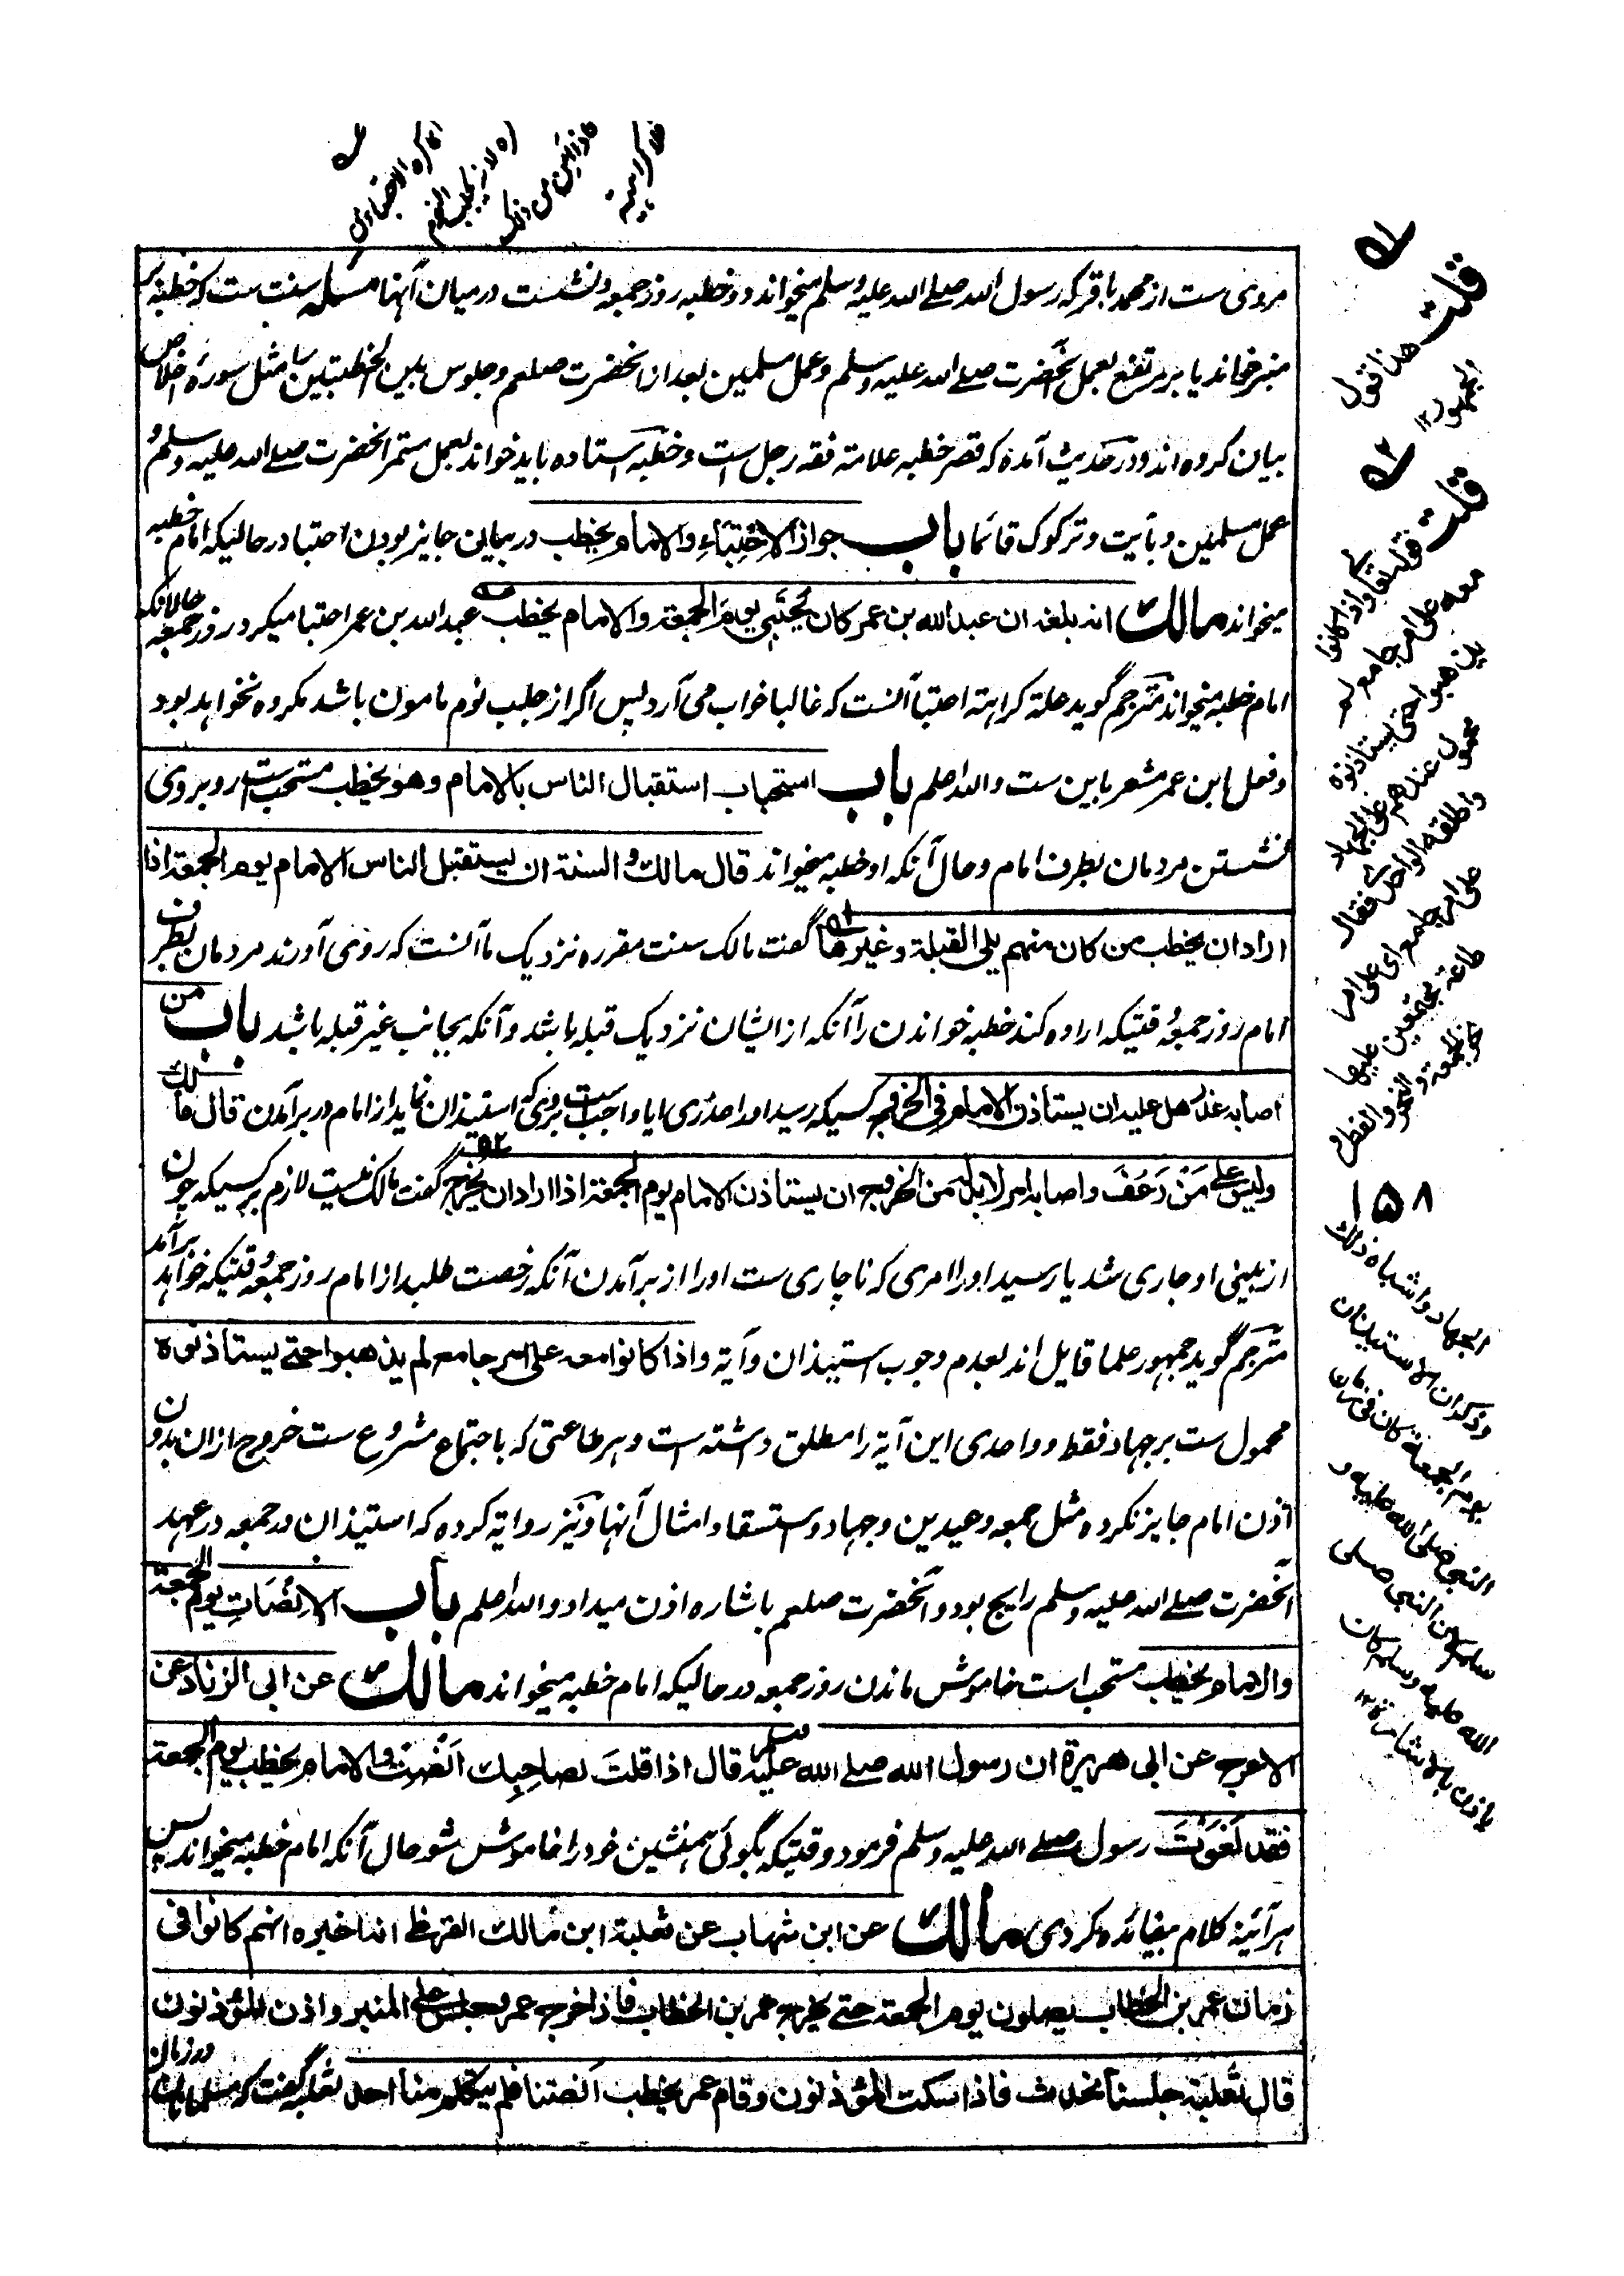 مروی ست از محمد باقر که رسول الله صلے الله علیه وسلم میخواند دو خطبه روز جمعه و نشست درمیان آنها مسئله سنت ست که خطبه بر
منبر خواند یا بر مرتفع بعمل آنحضرت صلے الله علیه وسلم و عمل مسلمین بعد از آنحضرت صلعم و جلوس بین الخطبتین را مثل سورهٔ اخلاص
بیان کرده اند و در حدیث آمده که قصر خطبه علامته فقه رجل است و خطبه استاده باید خواند بعمل مستمر آنحضرت صلے الله علیه وسلم و
عمل مسلمین و بآیت وترکوک قائما باب جواز الاحتباء والامام یخطب در بیان جایز بودن احتبا در حالیکه امام خطبه
میخواند مالك انه بلغه ان عبد الله بن عمر كان يحتبي يوم الجمعة والامام يخطب عبد الله بن عمر احتبا میکرد روز جمعه حالانکه
امام خطبه میخواند مترجم گوید علة کراهته احتبا آنست که غالبا خواب می آرد پس اگر از جلب نوم مامون باشد مکروه نخواهد بود
و فعل ابن عمر مشعر باین ست والله اعلم باب استحباب استقبال الناس بالامام وهو يخطب مستحب ست روبروی
نشستن مردمان بطرف امام و حال آنکه او خطبه میخواند قال مالك والسنة ان يستقبل الناس الامام يوم الجمعة اذا
اراد ان يخطب من كان منهم يلي القبلة وغيرها گفت مالک سنت مقرره نزدیک ما آنست که روی آورند مردمان بطرف
امام روز جمعه وقتیکه اراده کند خطبه خواندن را آنکه از ایشان نزدیک قبله باشد و آنکه بجانب غیر قبله باشد باب من
اصابه عذر هل عليه ان يستاذن الامام في الخروج کسیکه رسید او را عذری ایا واجب ست بروی که استیذان نماید از امام در برآمدن قال مالك
وليس على من رعف واصابه امر لابد له من الخروج ان يستاذن الامام يوم الجمعة اذا اراد ان يخرج گفت مالک نیست لازم بر کسیکه خون
از بینی او جاری شد یا رسید او را امری که ناچاری ست او را از برآمدن آنکه رخصت طلبد از امام روز جمعه وقتیکه خواهد برآمد
مترجم گوید جمهور علما قایل اند بعدم وجوب استیذان و آیة واذا كانوا معه على امر جامع لم يذهبوا حتى يستاذنوه
محمول ست بر جهاد فقط و واحدی این آیة را مطلق داشته است و هر طاعتی که باجتماع مشروع ست خروج از ان بدون
اذن امام جایز نکرده مثل جمعه و عیدین و جهاد و استسقا و امثال آنها و نیز روایة کرده که استیذان در جمعه در عهد
آنحضرت صلے الله علیه وسلم رایج بود و آنحضرت صلعم باشاره اذن میداد والله اعلم باب الانصات يوم الجمعة
والامام يخطب مستحب است خاموش ماندن روز جمعه در حالیکه امام خطبه میخواند مالك عن ابی الزناد عن
الاعرج عن ابی هريرة ان رسول الله صلے الله عليه وسلم قال اذا قلت لصاحبك انصت والامام يخطب يوم الجمعة
فقد لغوت رسول صلے الله علیه وسلم فرمود وقتیکه بگوئی همنشین خود را خاموش شو حال آنکه امام خطبه میخواند پس
هر آئینه کلام بیفائده کردی مالك عن ابن شهاب عن ثعلبة ابن مالك القرظی انه اخبره انهم كانوا فی
زمان عمر بن الخطاب يصلون يوم الجمعة حتے يخرج عمر بن الخطاب فاذا خرج عمر وجلس على المنبر واذن المؤذنون
قال ثعلبة جلسنا نتحدث فاذا سكت المؤذنون وقام عمر يخطب انصتنا فلم يتكلم منا احد ثعلبه گفت که مسلمانان در زمان
قلت هذا قول
الجمهور ۱۲
قلت قوله تعالى واذا كانوا
معه على امر جامع لم
يذهبوا حتى يستاذنوه
محمول عندهم على الجهاد
واطلقه الواحدي فقال
على امر جامع اي على امر
طاعة يجتمعون عليها
نحو الجمعة والنحر والفطر و
۱۵۸
الجهاد واشباه ذلك
وذكر ان الاستيذان
يوم الجمعة كان في زمان
النبي صلى الله عليه و
سلم وان النبي صلى
الله عليه وسلم كان
ياذن بالاشارة ۱۲